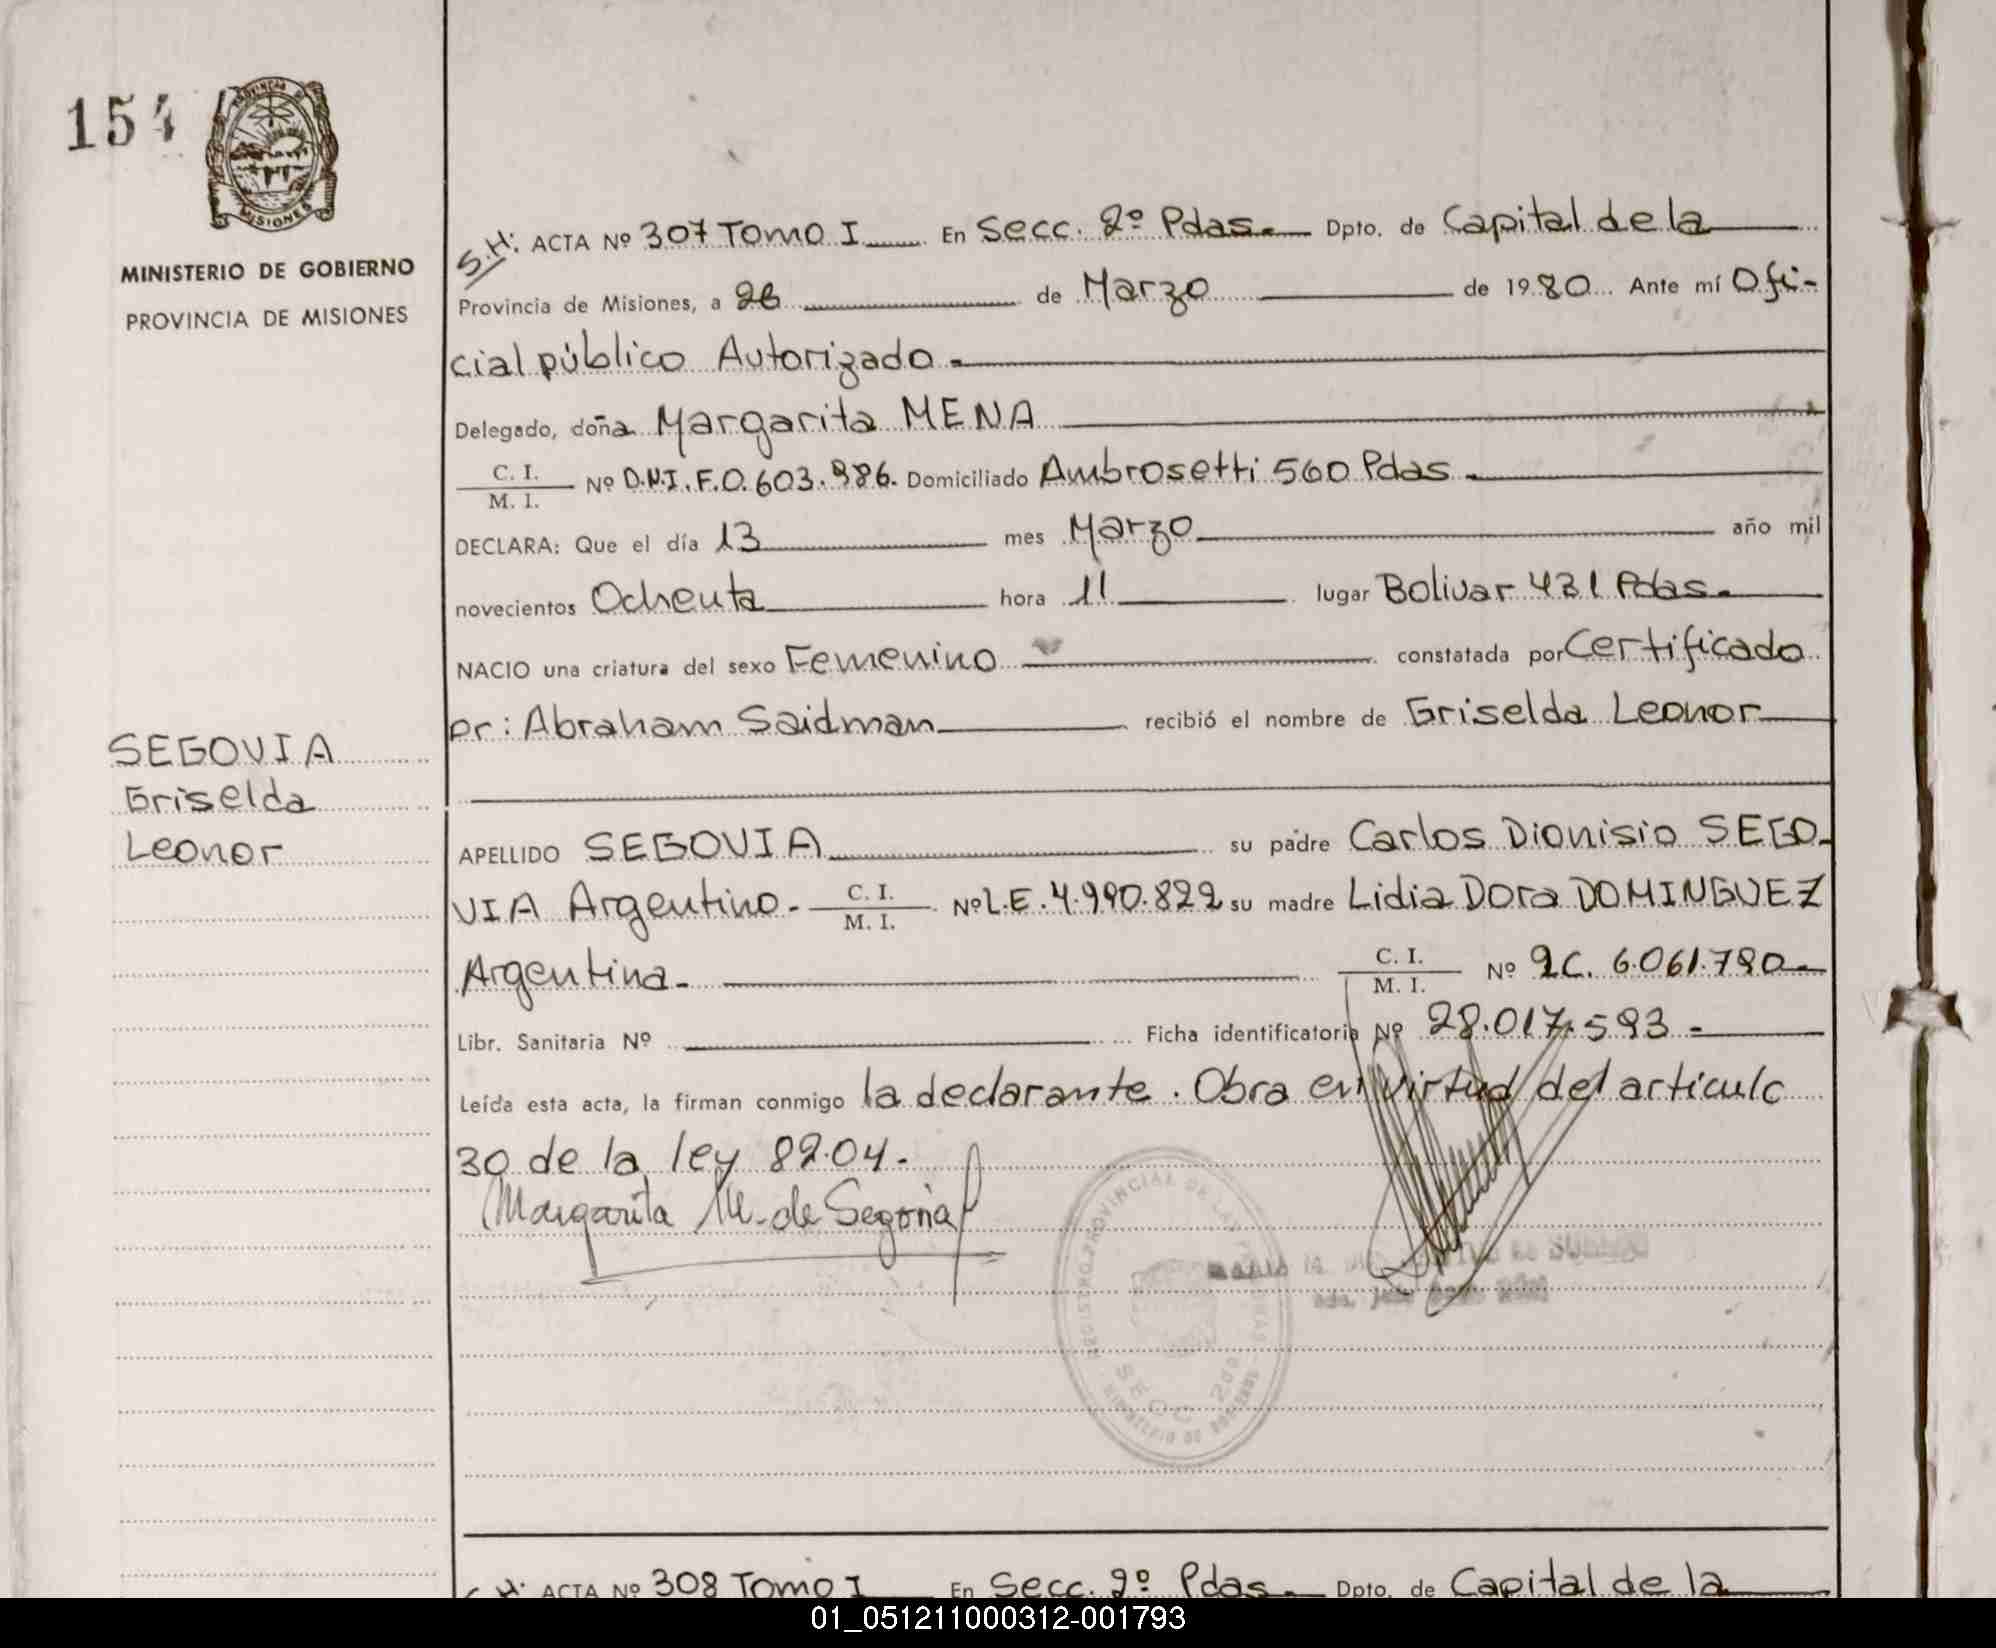 154
PROVINCIA DE
MISIONES
MINISTERIO DE GOBIERNO
PROVINCIA DE MISIONES
SEGOVIA
Griselda
Leonor
S.H: ACTA Nº 307 Tomo I En Secc. 2º Pdas. Dpto. de Capital de la
Provincia de Misiones, a 26 de Marzo de 1980 Ante mí Ofi-
cial público Autorizado.
Delegado, doña Margarita MENA
C. I.
M. I. Nº D.N.I. F.0.603.986. Domiciliado Ambrosetti 560 Pdas.
DECLARA: Que el día 13 mes Marzo año mil
novecientos Ochenta hora 11 lugar Bolivar 431 Pdas.
NACIO una criatura del sexo Femenino constatada por Certificado
Dr: Abraham Saidman recibió el nombre de Griselda Leonor
APELLIDO SEGOVIA su padre Carlos Dionisio SEGO-
VIA Argentino. C. I.
M. I. Nº L.E. 4.990.822 su madre Lidia Dora DOMINGUEZ
Argentina. C. I.
M. I. Nº LC. 6.061.790
Libr. Sanitaria Nº Ficha identificatoria Nº 28.017.593
Leída esta acta, la firman conmigo la declarante. Obra en virtud del articulo
30 de la ley 8204.
Margarita M. de Segovia
REGISTRO PROVINCIAL DE LAS
SECC. 2da
MINISTERIO DE GOBIERNO
ACTA Nº 308 Tomo I En Secc. 2º Pdas. Dpto. de Capital de la
01_051211000312-001793